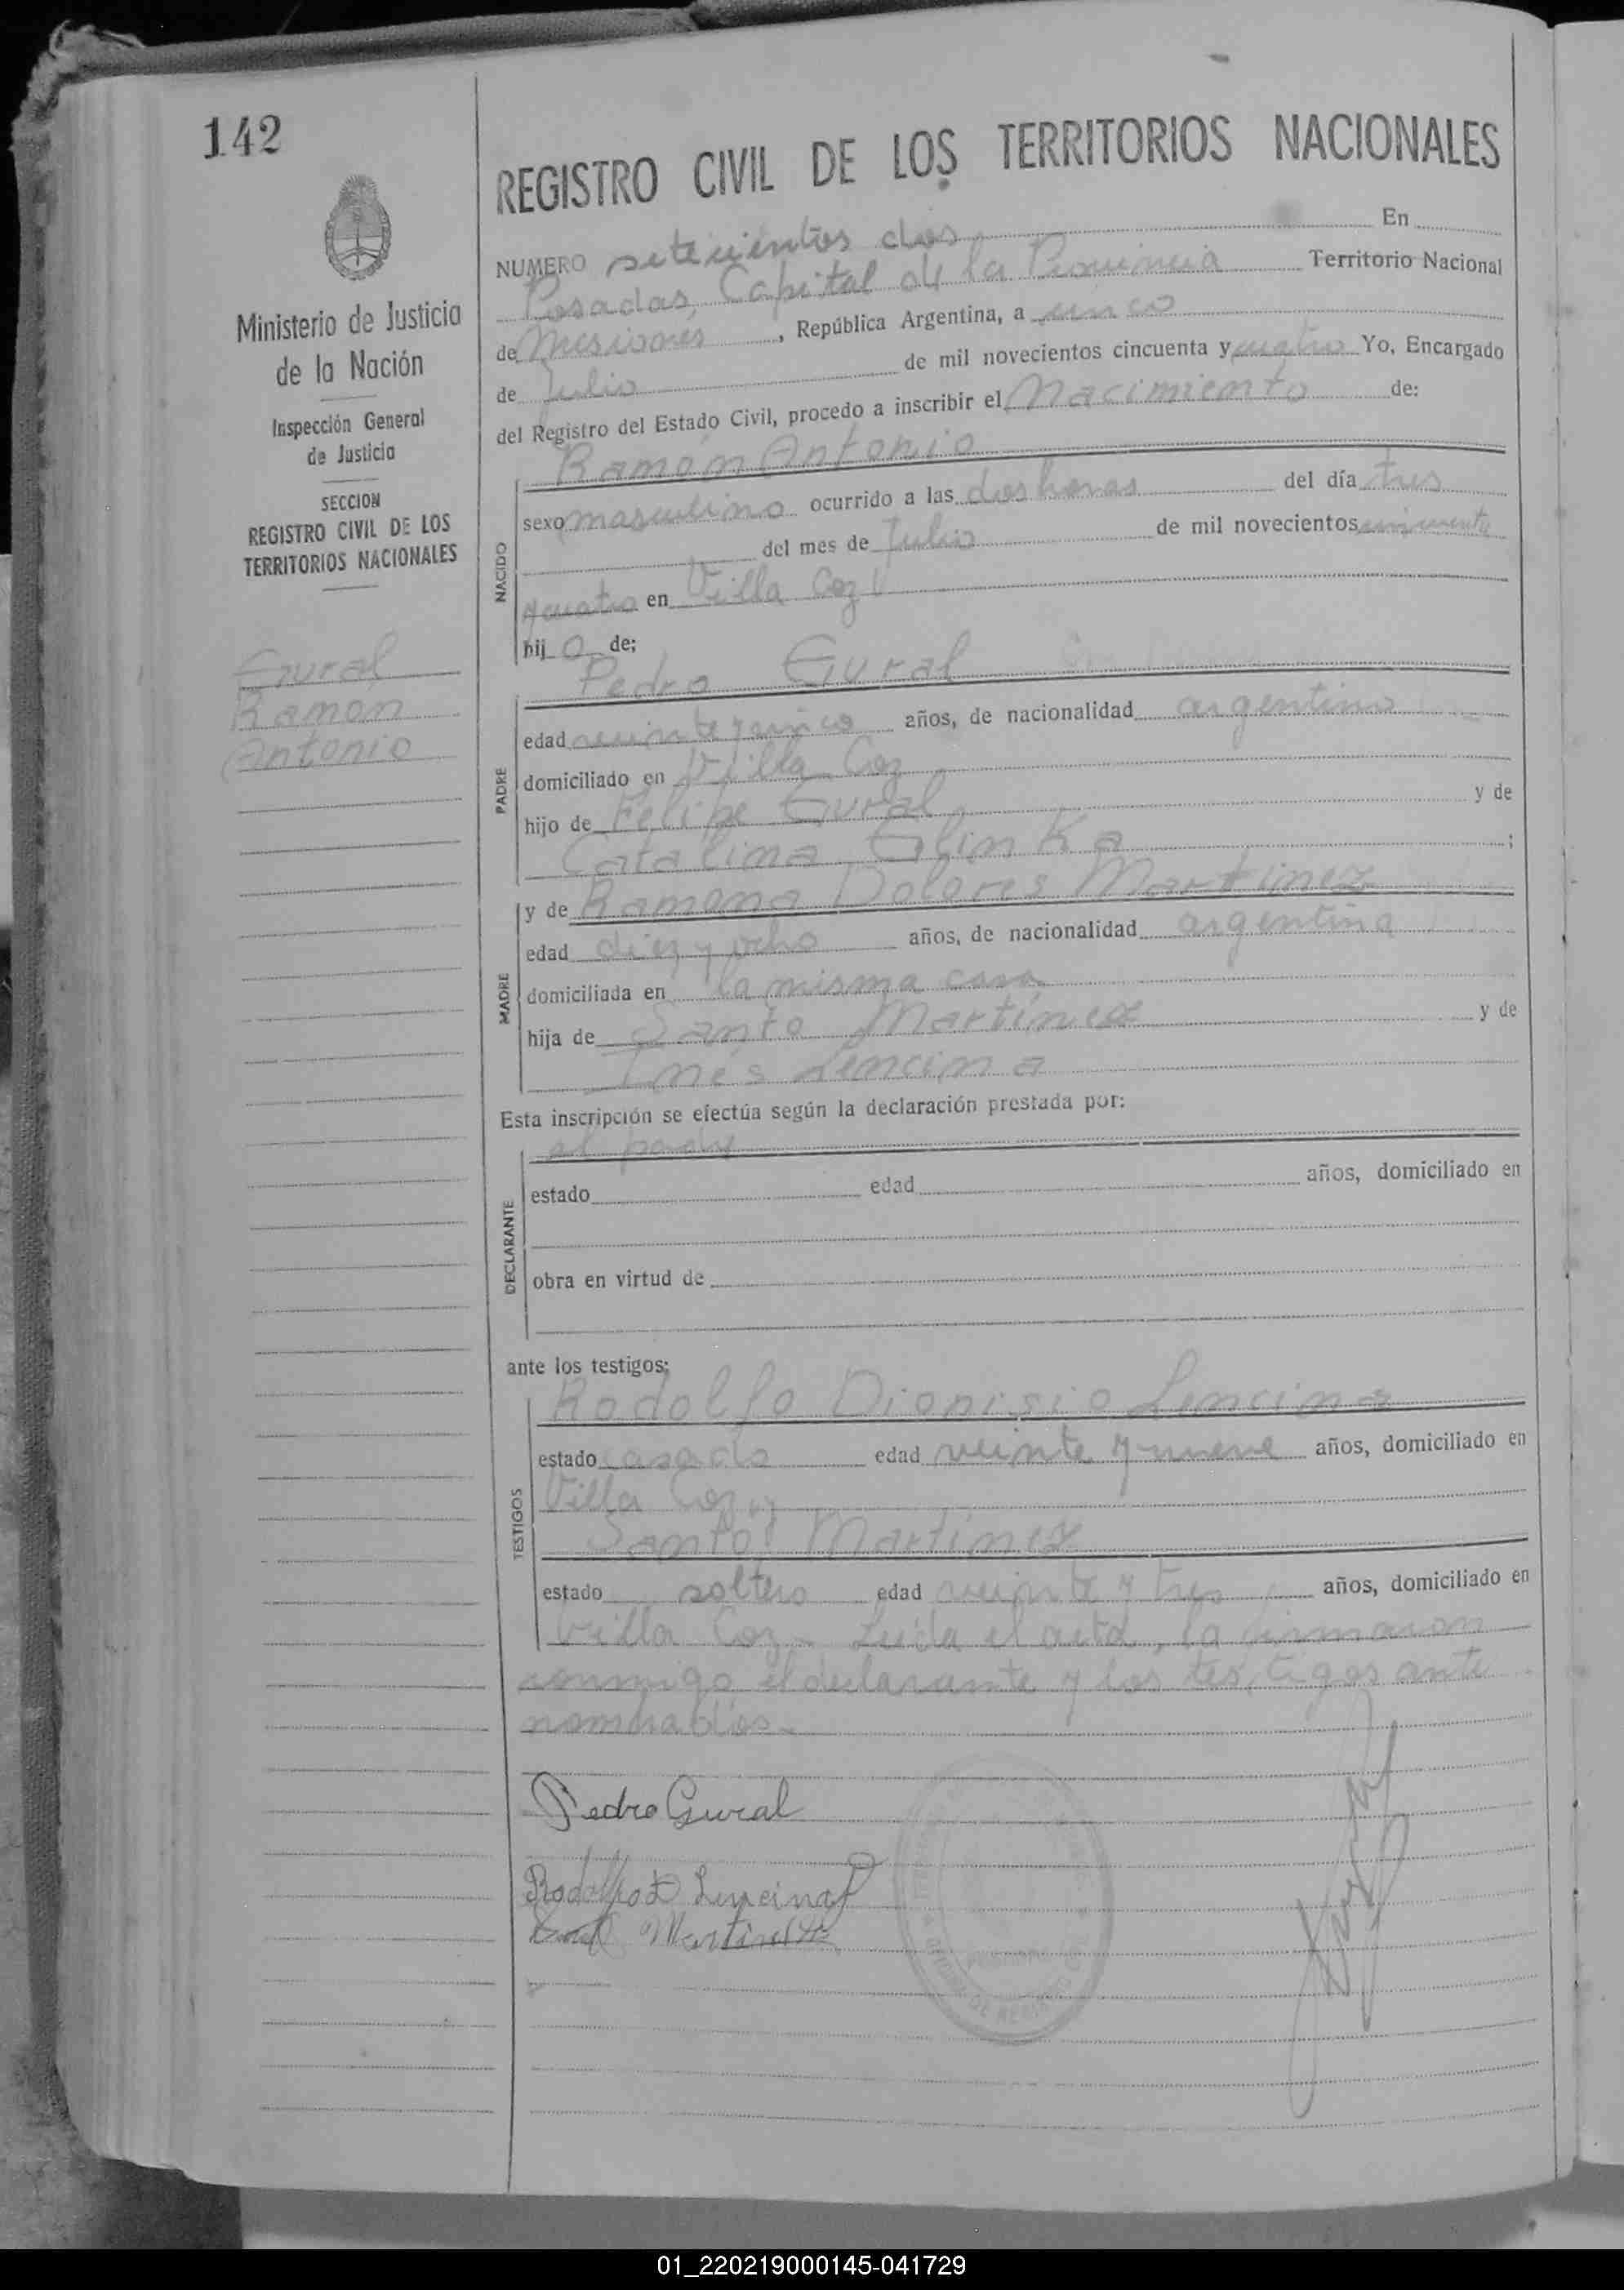 142
REGISTRO CIVIL DE LOS TERRITORIOS NACIONALES
Ministerio de Justicia
de la Nación
Inspección General
de Justicia
SECCION
REGISTRO CIVIL DE LOS
TERRITORIOS NACIONALES
Gural
Ramón
Antonio
NUMERO setecientos dos En
Posadas, Capital de la Provincia Territorio Nacional
de Misiones, República Argentina, a cinco
de Julio de mil novecientos cincuenta y cuatro Yo, Encargado
del Registro del Estado Civil, procedo a inscribir el Nacimiento de:
NACIDO
Ramón Antonio
sexo masculino ocurrido a las dos horas del día tres
del mes de Julio de mil novecientos cincuenta
y cuatro en Villa Coz
hijo de;
PADRE
Pedro Gural
edad veinte y cinco años, de nacionalidad argentino
domiciliado en Villa Coz
hijo de Felipe Gural y de
Catalina Glinka ;
MADRE
y de Ramona Dolores Martinez
edad diez y ocho años, de nacionalidad argentina
domiciliada en la misma casa
hija de Santo Martínez y de
Inés Lencina
Esta inscripción se efectúa según la declaración prestada por:
DECLARANTE
el padre
estado edad años, domiciliado en
obra en virtud de
ante los testigos:
TESTIGOS
Rodolfo Dionisio Lencina
estado casado edad veinte y nueve años, domiciliado en
Villa Coz y
Santo Martinez
estado soltero edad veinte y tres años, domiciliado en
Villa Coz - Leida el acta, la firmaron
conmigo el declarante y los testigos ante
nominados.-
Pedro Gural
Rodolfo D Lencina
Martinez
01_220219000145-041729